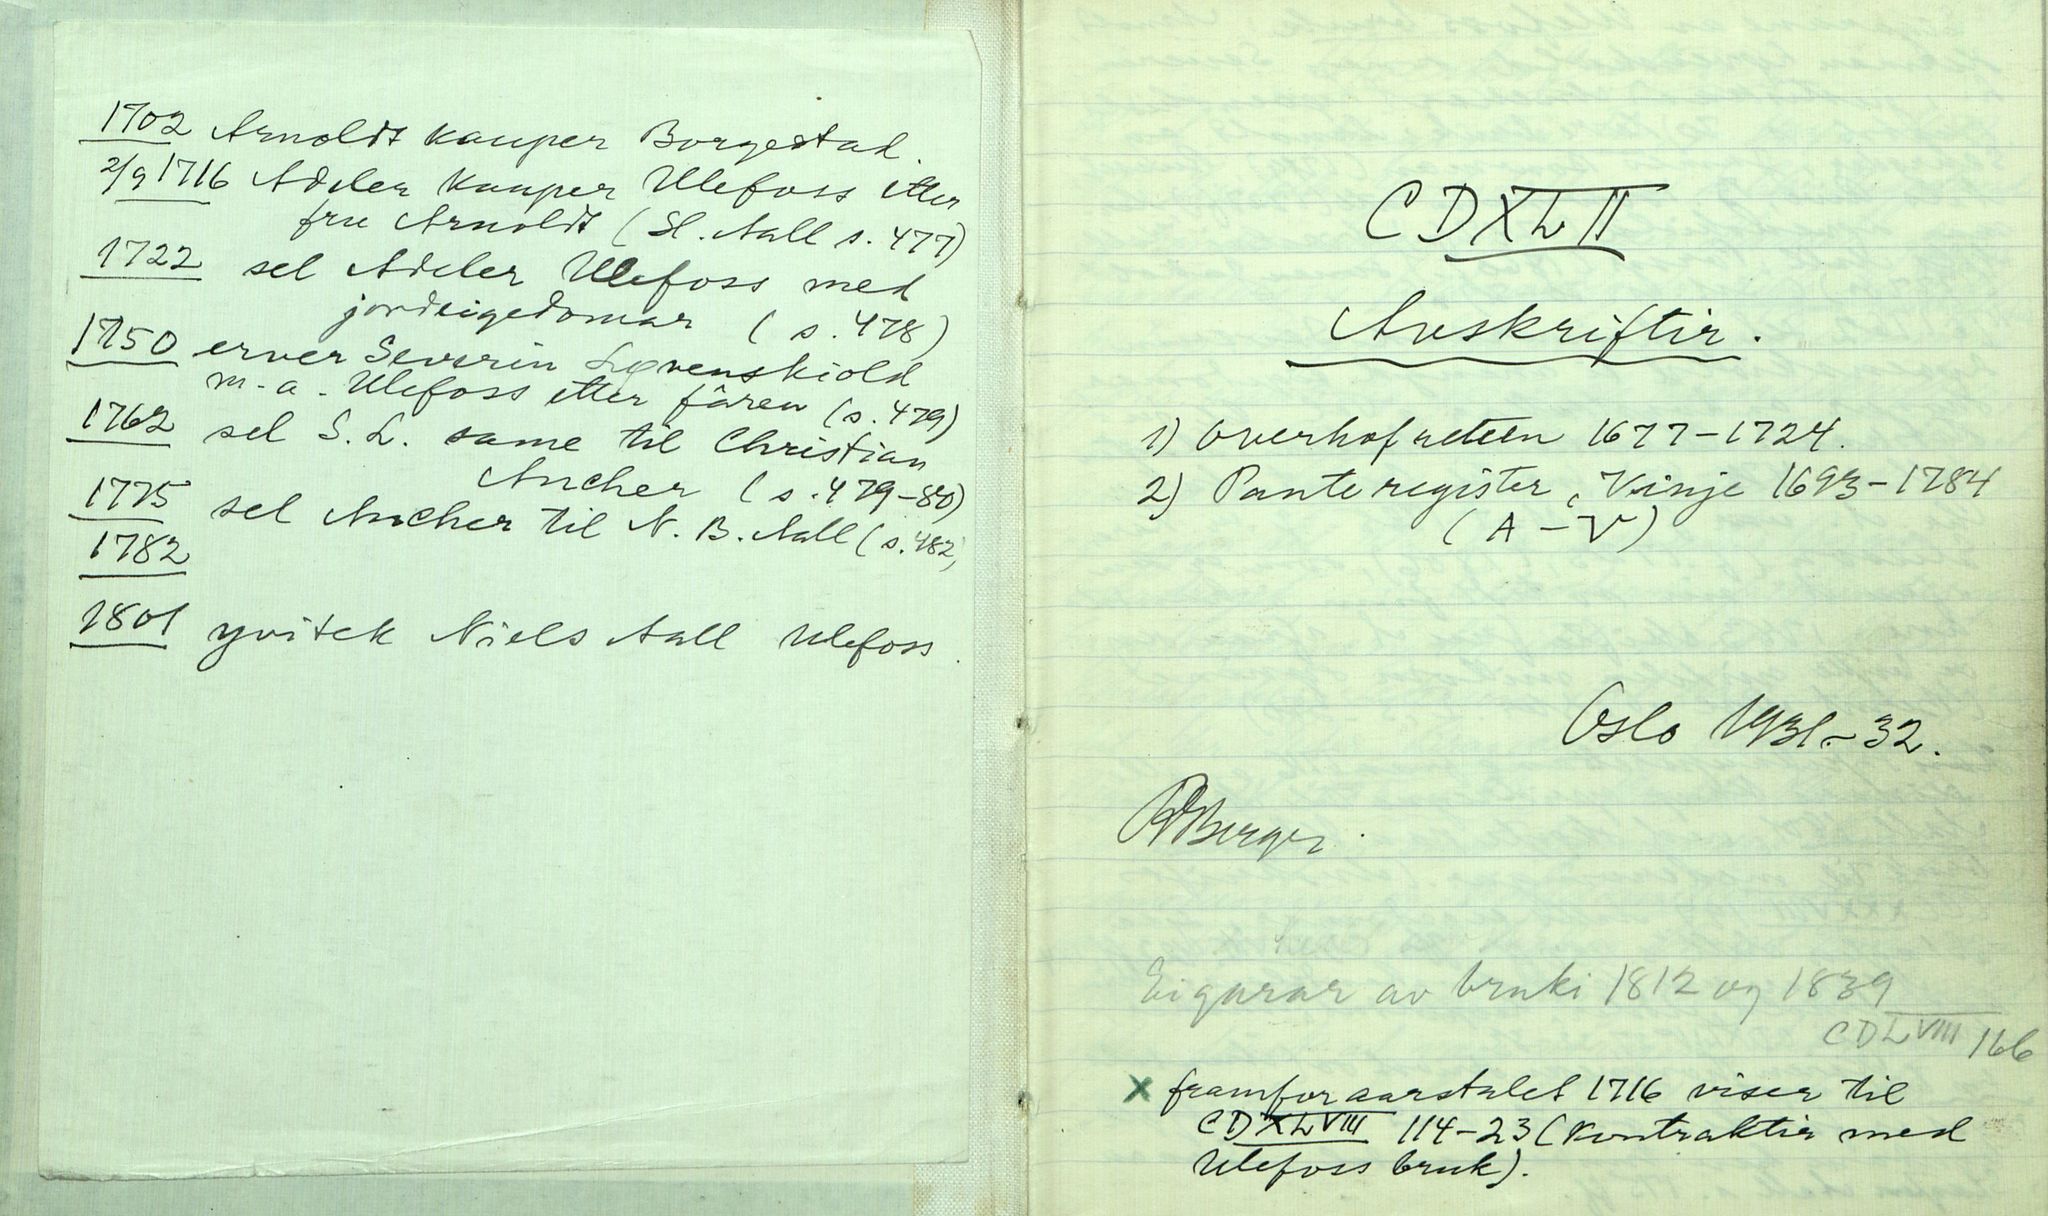 1702 Arnoldt kauper Borgestad.
2/9 1716 Adeler kauper Ulefoss etter
fru Arnoldt (Sl. Aall s. 477)
1722 sel Adeler Ulefoss med
jordeigedomar (s. 478)
1750 erver Severin Løvenskiold
m.a. Ulefoss etter fåren (s. 479)
1762 sel S. L. same til Christian
Ancher (s. 479-80)
1775 sel Ancher til N. B. Aall (s. 482)
1782
1801 yvitek Niels Aall Ulefoss.
CDXLII
Avskriftir.
1) Overhofretten 1677-1724.
2) Panteregister, Vinje 1693-1784
(A-V)
Oslo 1931-32.
RBerge.
Eigarar av bruki 1812 og 1839
CDLVIII 166
x framfor aarstalet 1716 viser til
CDXLVIII 114-23 (kontraktir med
Ulefoss bruk).